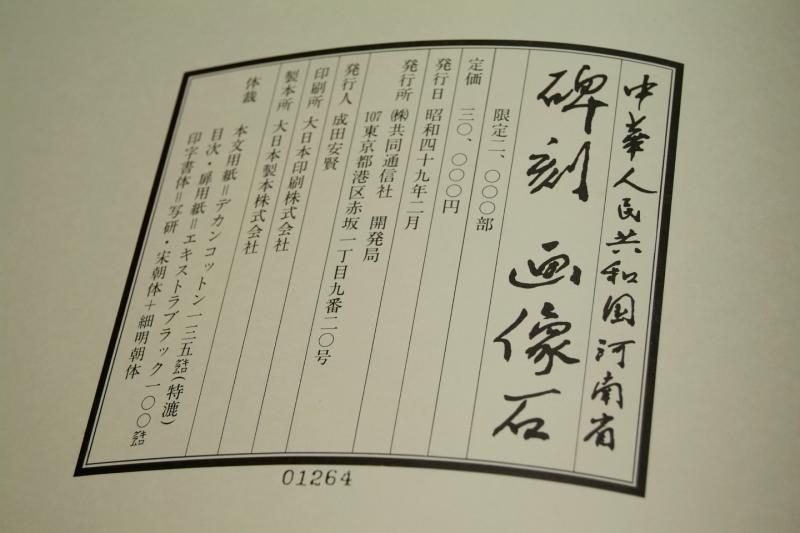 中華人民共和国河南省
碑刻 画像石
限定二、〇〇〇部
定価 三〇、〇〇〇円
発行日 昭和四十九年二月
発行所 ㈱共同通信社 開発局
107 東京都港区赤坂一丁目九番二〇号
発行人 成田安賢
印刷所 大日本印刷株式会社
製本所 大日本製本株式会社
体裁 本文用紙＝デカンコットン一三五㌔(特漉)
目次・扉用紙＝エキストラブラック一〇〇㌔
印字書体＝写研・宋朝体＋細明朝体
01264